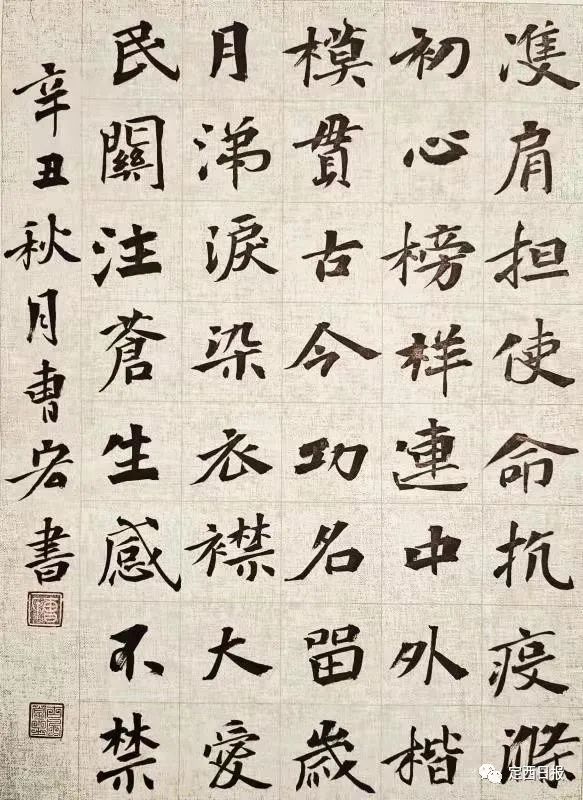 雙肩担使命抗疫滌
初心榜样連中外楷
模貫古今功名留歲
月涕淚染衣襟大愛
民關注蒼生感不禁
辛丑秋月曹宏書
定西日报